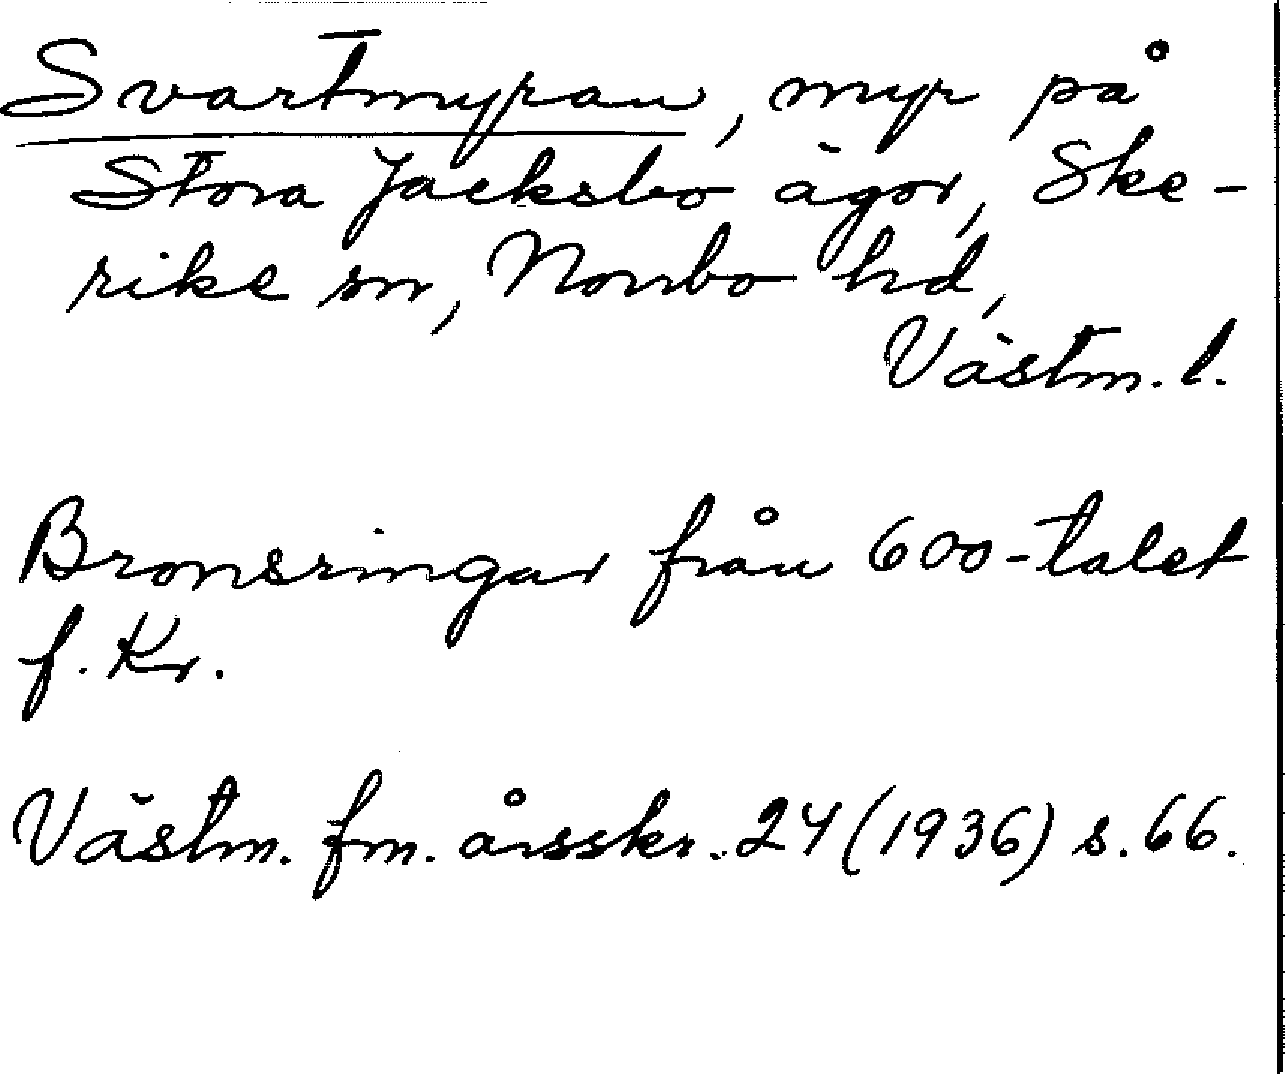 Svartmyran, myr på
Stora Jacksbo ägor, Ske-
rike sn, Norrbo hd,
Västm. l.
Bronsringar från 600-talet
f. Kr.
Västm. fm. årsskr. 24 (1936) s. 66.